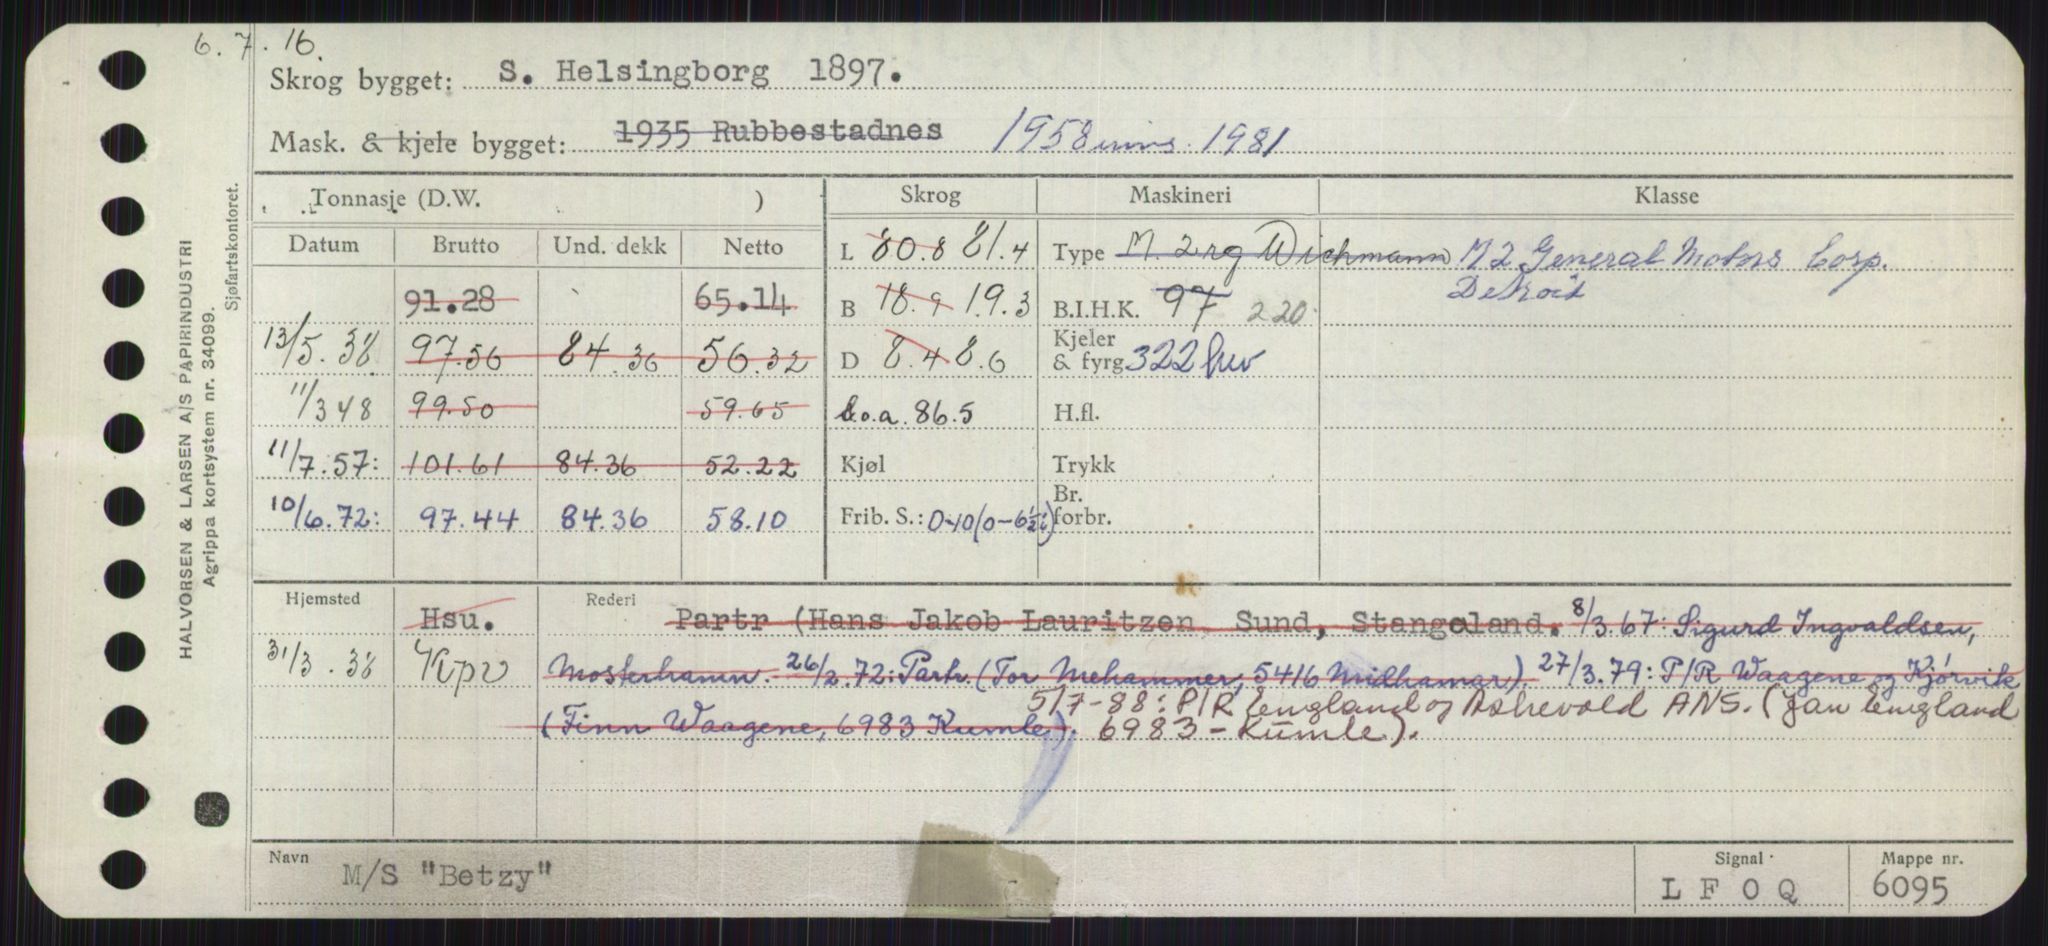 6. 7. 16.
Skrog bygget: S. Helsingborg 1897.
Mask. & kjele bygget: 1935 Rubbestadnes 1958 inns. 1981
Tonnasje (D.W. ) Skrog Maskineri Klasse
Datum Brutto Und. dekk Netto L 80.8 81.4 Type M. 2 rg Wichmann M 2 General Motors Corp.
Detroit
91.28 65.14 B 18.9 19.3 B.I.H.K. 97 220
13/5.38 97.56 84.36 56.32 D 8.4 8.6 Kjeler & fyrg 322 hw
11/3 48 99.50 59.65 l.o.a. 86.5 H.fl.
11/7.57: 101.61 84.36 52.22 Kjøl Trykk
10/6.72: 97.44 84.36 58.10 Frib. S.: 0-10 (0-6½i) Br. forbr.
Hjemsted Rederi
Hsu. Partr (Hans Jakob Lauritzen Sund, Stangeland. 8/3.67: Sigurd Ingvaldsen,
31/3.38 Kpv Mosterhamn. 26/2.72: Partr. (Tor Mehammer, 5416 Midhamar). 27/3.79: P/R Waagene og Kjørvik
5/7-88: P/R England og Ashevold ANS. (Jan England
(Finn Waagene, 6983 Kumle). 6983 - Kumle).
Navn M/S "Betzy" Signal L F O Q Mappe nr. 6095
HALVORSEN & LARSEN A/S PAPIRINDUSTRI
Agrippa kortsystem nr. 34099.
Sjøfartskontoret.